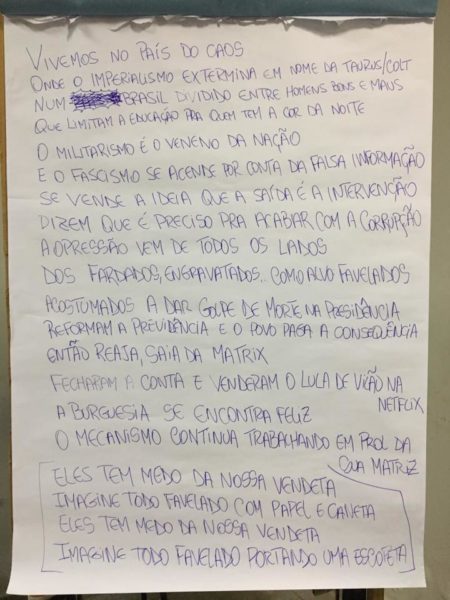 VIVEMOS NO PAÍS DO CAOS
ONDE O IMPERIALISMO EXTERMINA EM NOME DA TAURUS/COLT
NUM BRASIL DIVIDIDO ENTRE HOMENS BONS E MAUS
QUE LIMITAM A EDUCAÇÃO PRA QUEM TEM A COR DA NOITE
O MILITARISMO É O VENENO DA NAÇÃO
E O FASCISMO SE ACENDE POR CONTA DA FALSA INFORMAÇÃO
SE VENDE A IDEIA QUE A SAÍDA É A INTERVENÇÃO
DIZEM QUE É PRECISO PRA ACABAR COM A CORRUPÇÃO
A OPRESSÃO VEM DE TODOS OS LADOS
DOS FARDADOS, ENGRAVATADOS.. COMO ALVO FAVELADOS
ACOSTUMADOS A DAR GOLPE DE MORTE NA PRESIDÊNCIA
REFORMAM A PREVIDÊNCIA E O POVO PAGA A CONSEQUÊNCIA
ENTÃO REAJA, SAIA DA MATRIX
FECHARAM A CONTA E VENDERAM O LULA DE VILÃO NA
NETFLIX
A BURGUESIA SE ENCONTRA FELIZ
O MECANISMO CONTINUA TRABALHANDO EM PROL DA
SUA MATRIZ
ELES TEM MEDO DA NOSSA VENDETA
IMAGINE TODO FAVELADO COM PAPEL E CANETA
ELES TEM MEDO DA NOSSA VENDETA
IMAGINE TODO FAVELADO PORTANDO UMA ESCOPETA